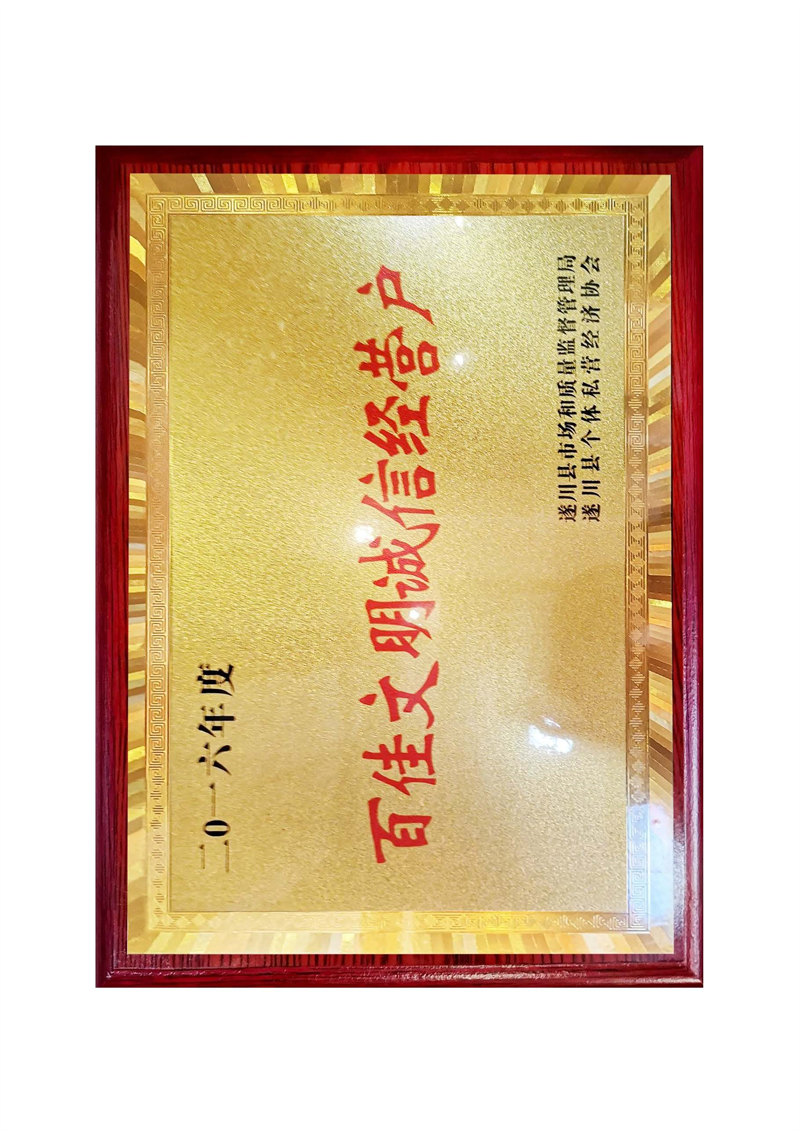 二0一六年度
百佳文明诚信经营户
遂川县市场和质量监督管理局
遂川县个体私营经济协会